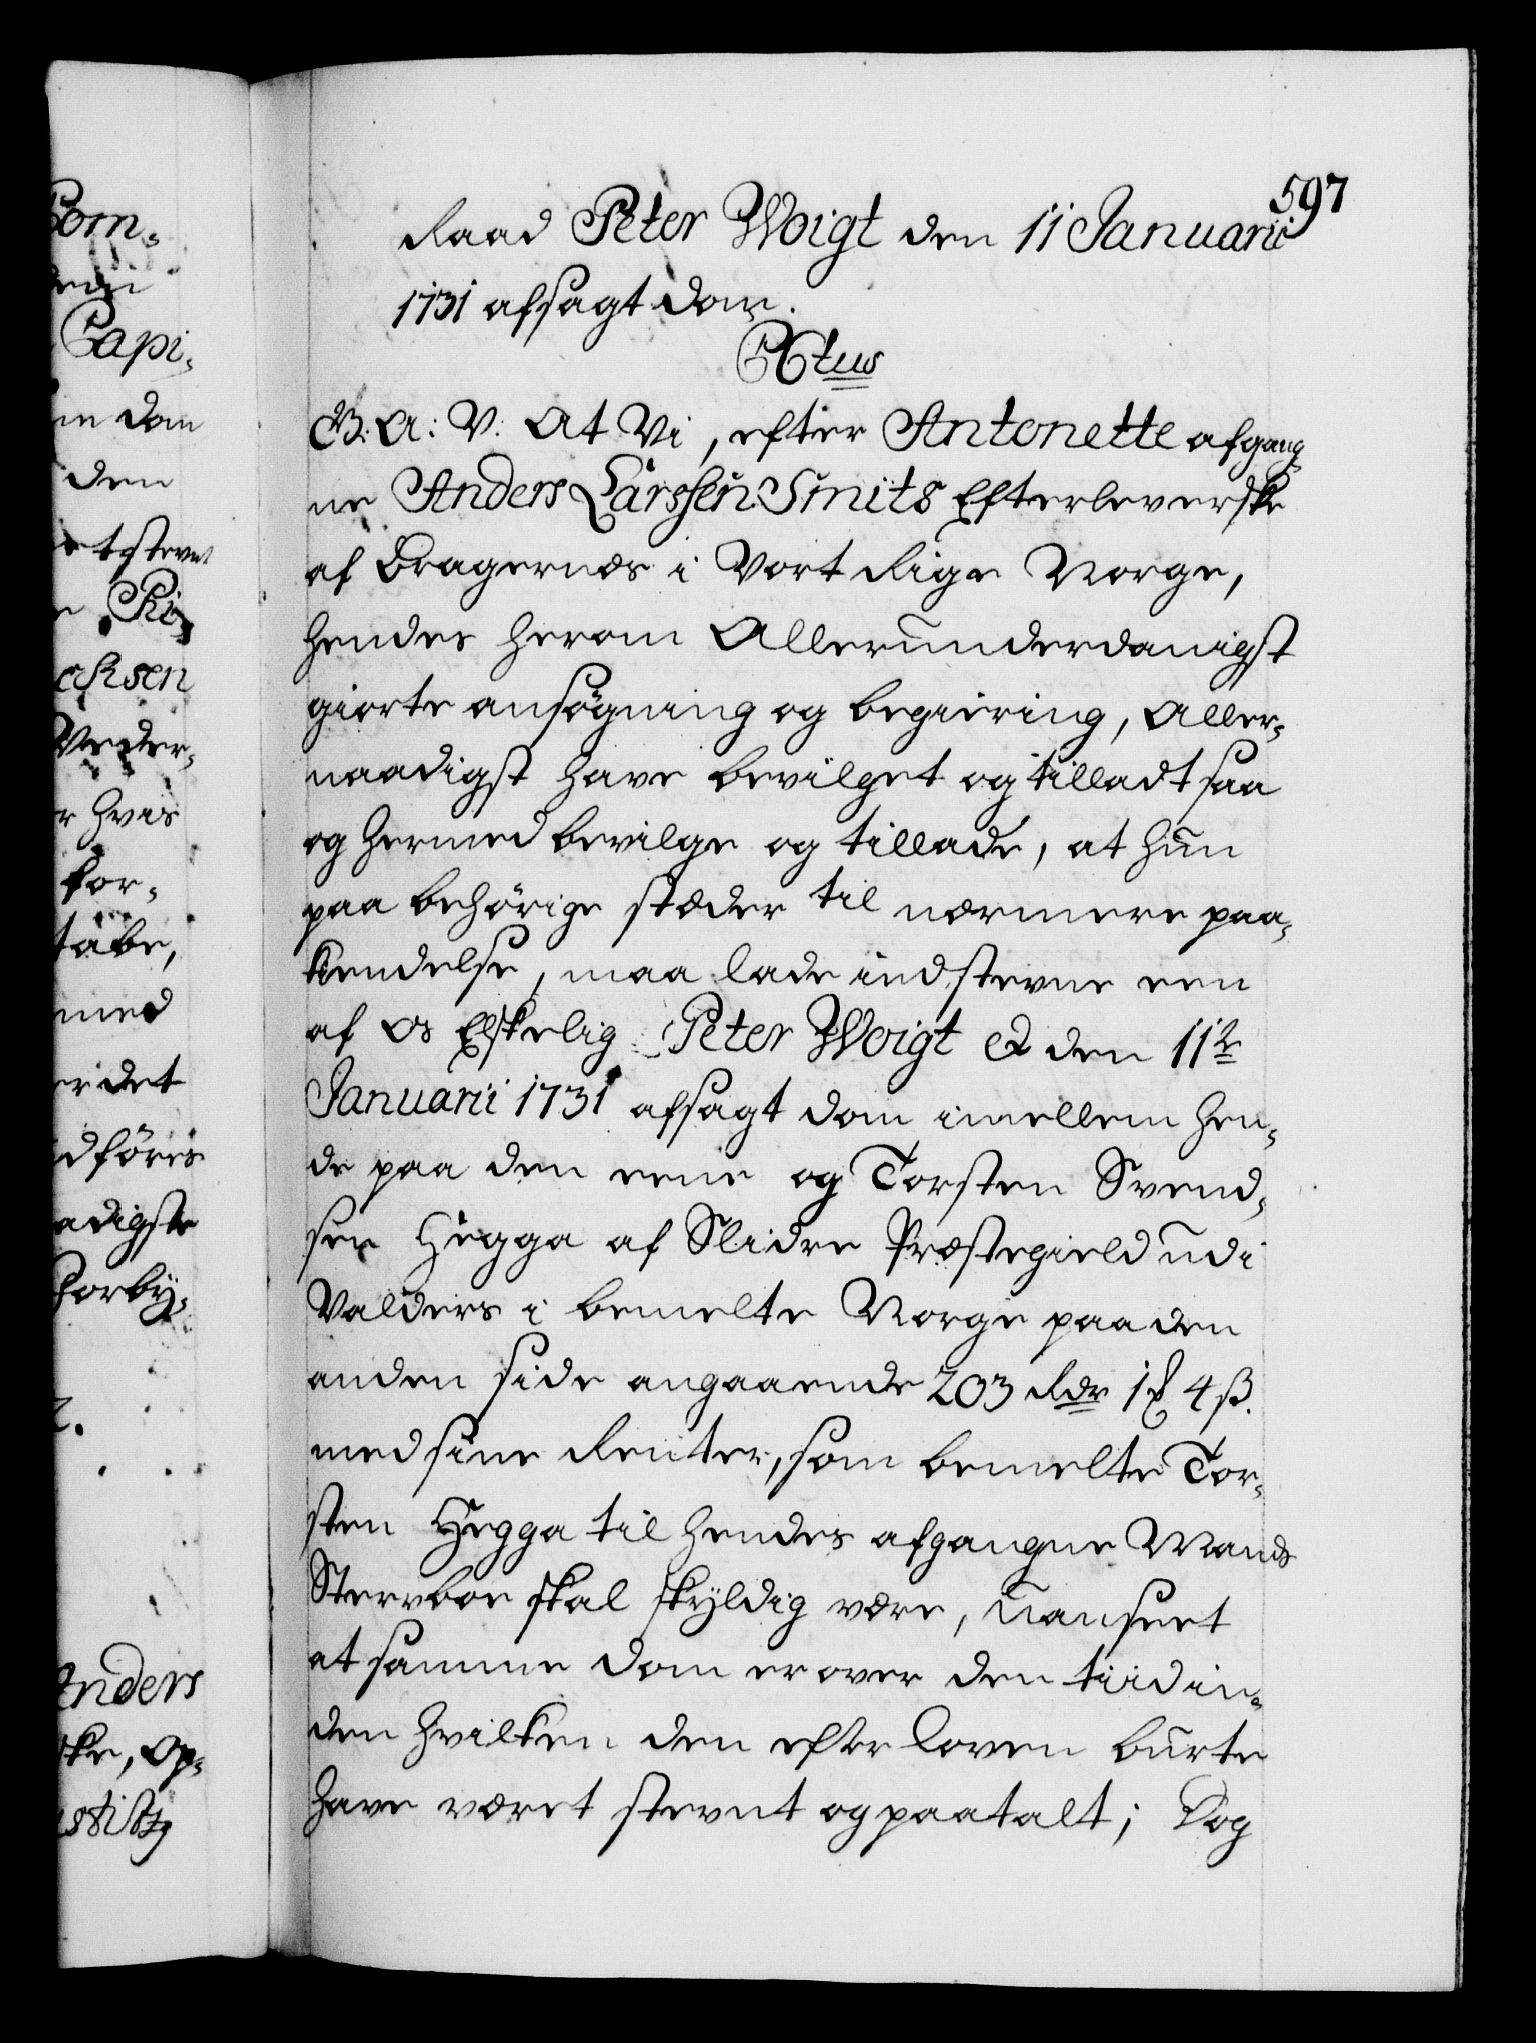 597
Raad Peter Woigt den 11 Januarii
1731 afsagt dom.
CXtus
G. A: V. At Vi, efter Antonette afgang¬
ne Anders Larssen Smits Efterleverske
af Bragernæs i Vort Rige Norge,
hendes herom Allerunderdanigst
giorte ansøgning og begiering, Aller¬
naadigst have bevilget og tilladt saa
og hermed bevilge og tillade, at hun
paa behörige stæder til nærmere paa¬
kiendelse, maa lade indstevne een
af Os Elskelig Peter Woigt & den 11te
Januarii 1731 afsagt dom imellem hen¬
de paa den eene og Torsten Svend¬
sen Hegga af Slidre Præstegield udi
Valders i bemelte Norge paa den
anden side angaaende 203 Rdr 1 4 ß.
med sine Renter, som bemelte Tor¬
sten Hegga til hendes afgangne Mands
Stervboe skal skyldig være, uanseet
at samme dom er over den tiid in¬
den hvilken den efter loven burte
have været stevnt og paatalt; Dog
Com¬
Capi¬
dom
den
hvis
for¬
tabe,
med
det
Anders